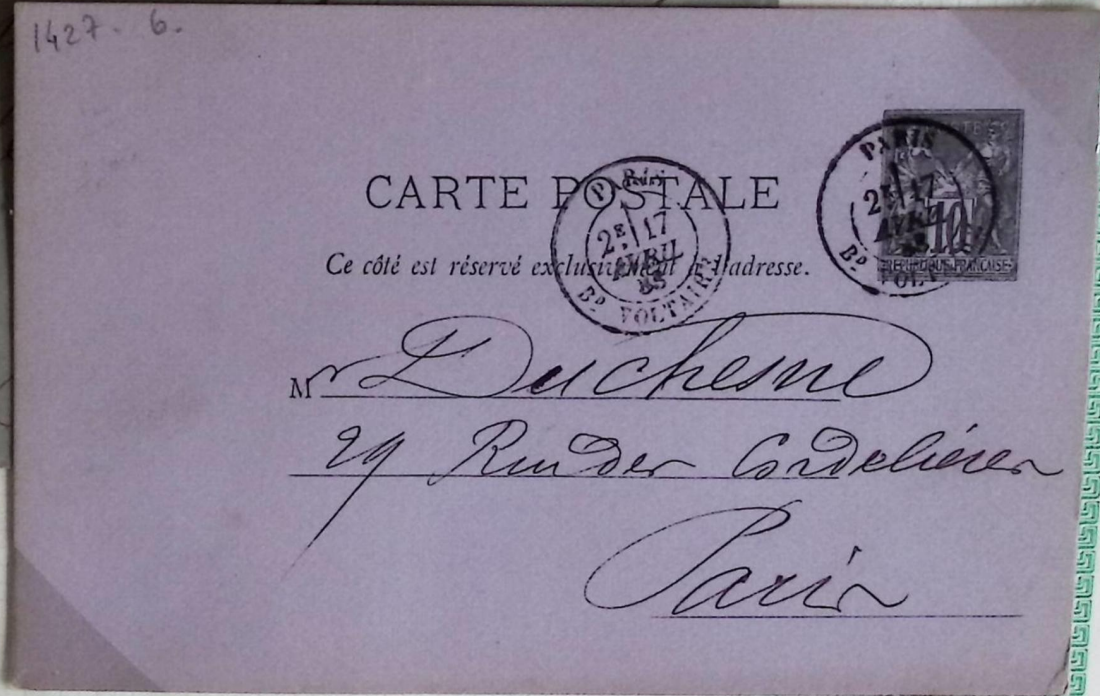 1427. 6.
CARTE POSTALE
Ce côté est réservé exclusivement à l'adresse.
PARIS
2E 17
AVRIL
85
BD VOLTAIRE
PARIS
2E 17
AVRIL
BD VOLT
10
REPUBLIQUE FRANÇAISE
Mr Duchesne
29 Rue des Cordelières
Paris